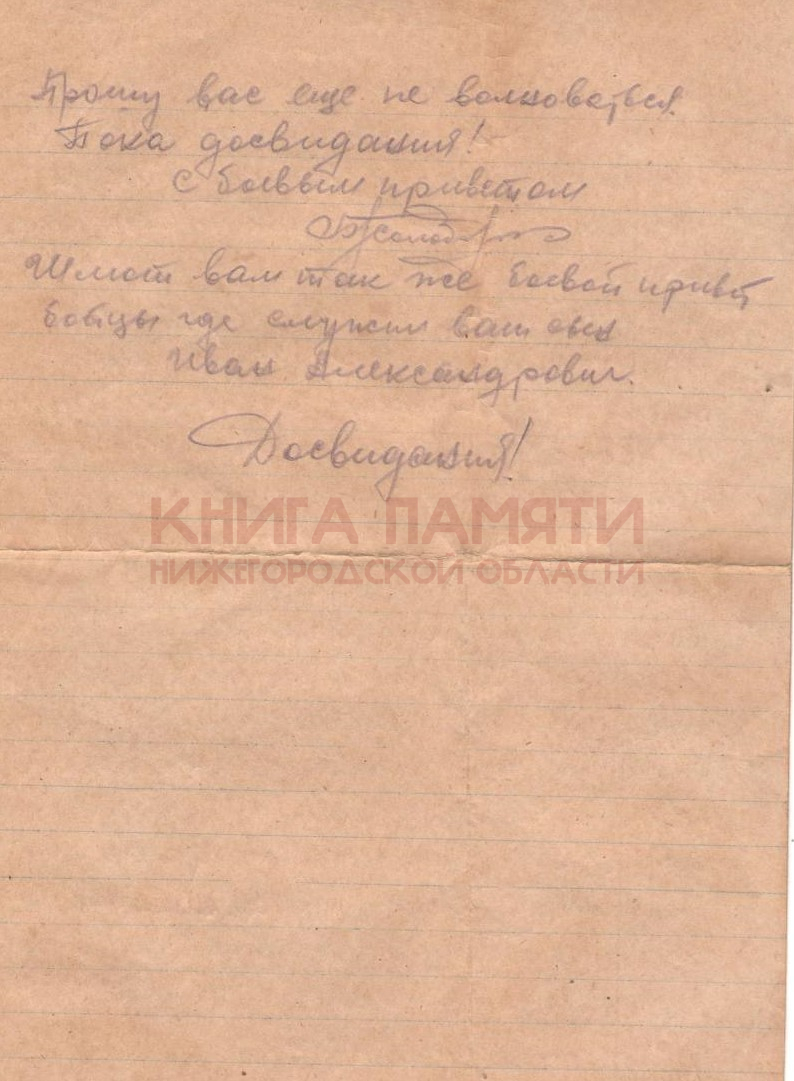 Прошу вас еще не волноваться.
Пока досвидания!
С боевым приветом
Шлют вам так же боевой привет
бойцы где служит ваш сын
Иван Александрович.
Досвидания!
КНИГА ПАМЯТИ
НИЖЕГОРОДСКОЙ ОБЛАСТИ